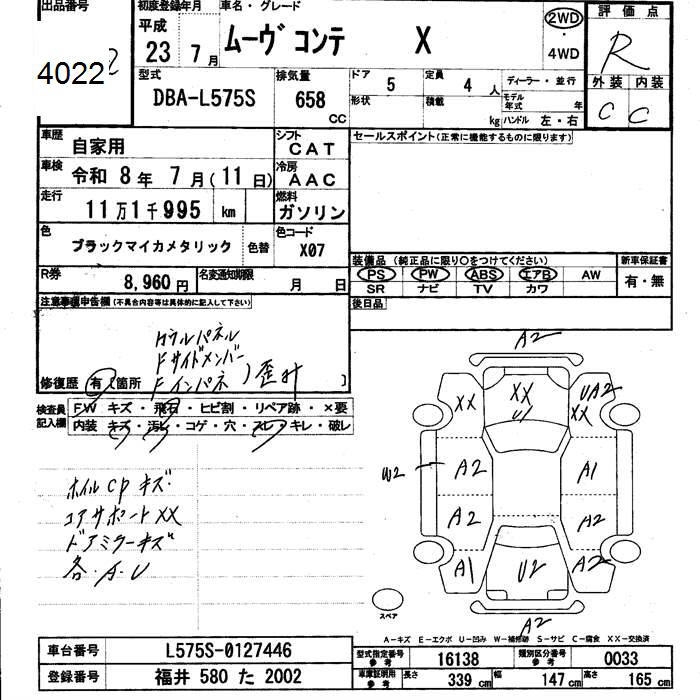 出品番号 初度登録年月 車名・グレード 2WD ・ 4WD 評価点
4022 平成 23年 7月 ムーヴコンテ X R
型式 DBA-L575S 排気量 658 CC ドア 5 定員 4人 ディーラー・並行 外装 内装
形状 積載 kg モデル年式 年 ハンドル 左・右 C C
車歴 自家用 シフト CAT セールスポイント(正常に機能するものに限ります)
車検 令和 8年 7月(11日) 冷房 AAC
走行 11万1千995 km 燃料 ガソリン
色 ブラックマイカメタリック 色替 色コード X07
装備品 (純正品に限り○をつけてください) 新車保証書
R券 8,960円 名変通知期限 月 日 PS PW ABS エアB AW 有・無
SR ナビ TV カワ
注意事項申告欄(不具合内容等は具体的に記入して下さい) 後日品
カウルパネル
Fサイドメンバー
修復歴 有(箇所 Fインパネ)歪み ]
検査員記入欄 FW キズ・飛石・ヒビ割・リペア跡・×要
内装 キズ・汚レ・コゲ・穴・スレ・キレ・破レ
ホイルCPキズ
コアサポートXX
ドアミラーキズ
各.A.U
A2
XX XX U1 UA2 XX
W2 A2 A1
A2 A2
A1 U2 A2
スペア A2
A-キズ E-エクボ U-凹み W-補修跡 S-サビ C-腐食 XX-交換済
車台番号 L575S-0127446 型式指定番号 参考 16138 類別区分番号 参考 0033
登録番号 福井 580 た 2002 車庫証明用 参考 長さ 339 cm 幅 147 cm 高さ 165 cm